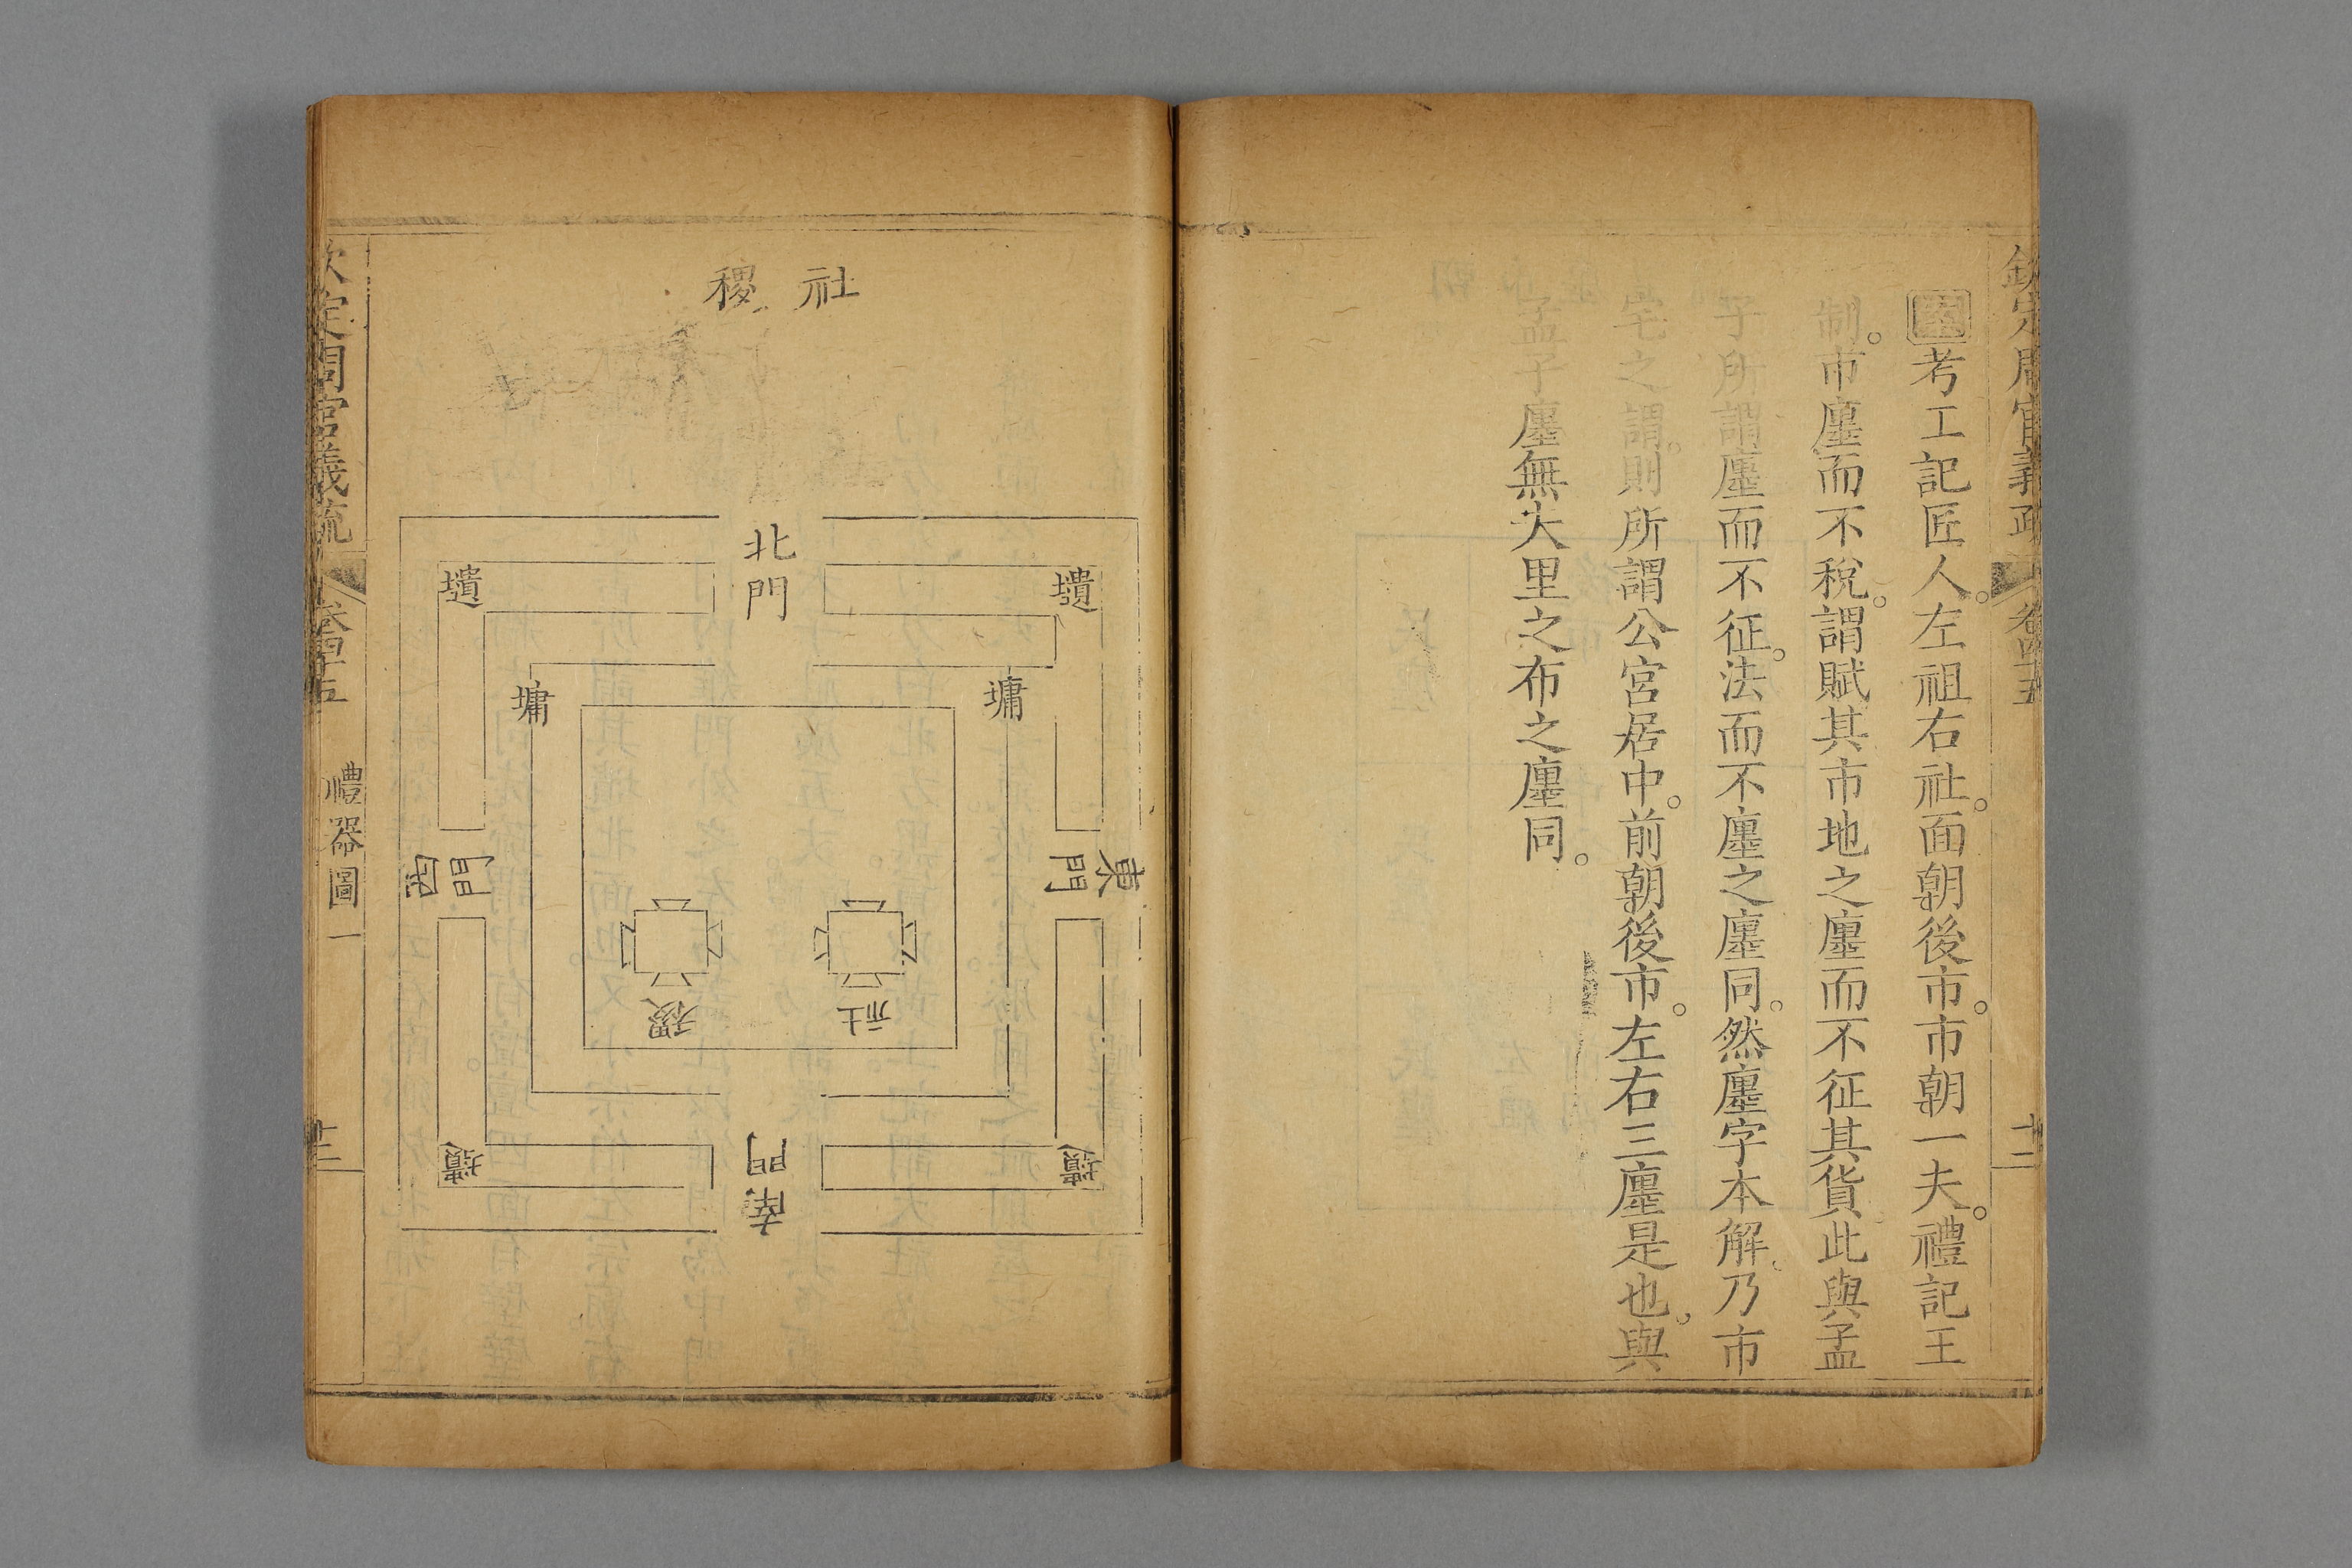 欽定周官義疏 卷四十五 十二
案考工記匠人。左祖右社。面朝後市。市朝一夫。禮記王
制。市廛而不稅。謂賦其市地之廛而不征其貨此與孟
子所謂廛而不征。法而不廛之廛同。然廛字本解。乃市
宅之謂。則所謂公宮居中。前朝後市。左右三廛是也。與
孟子廛無夫里之布之廛同。
社稷
北門
壝
壝
墉
墉
東門
西門
社
稷
壝
壝
南門
欽定周官義疏 卷四十五 禮器圖一 十三